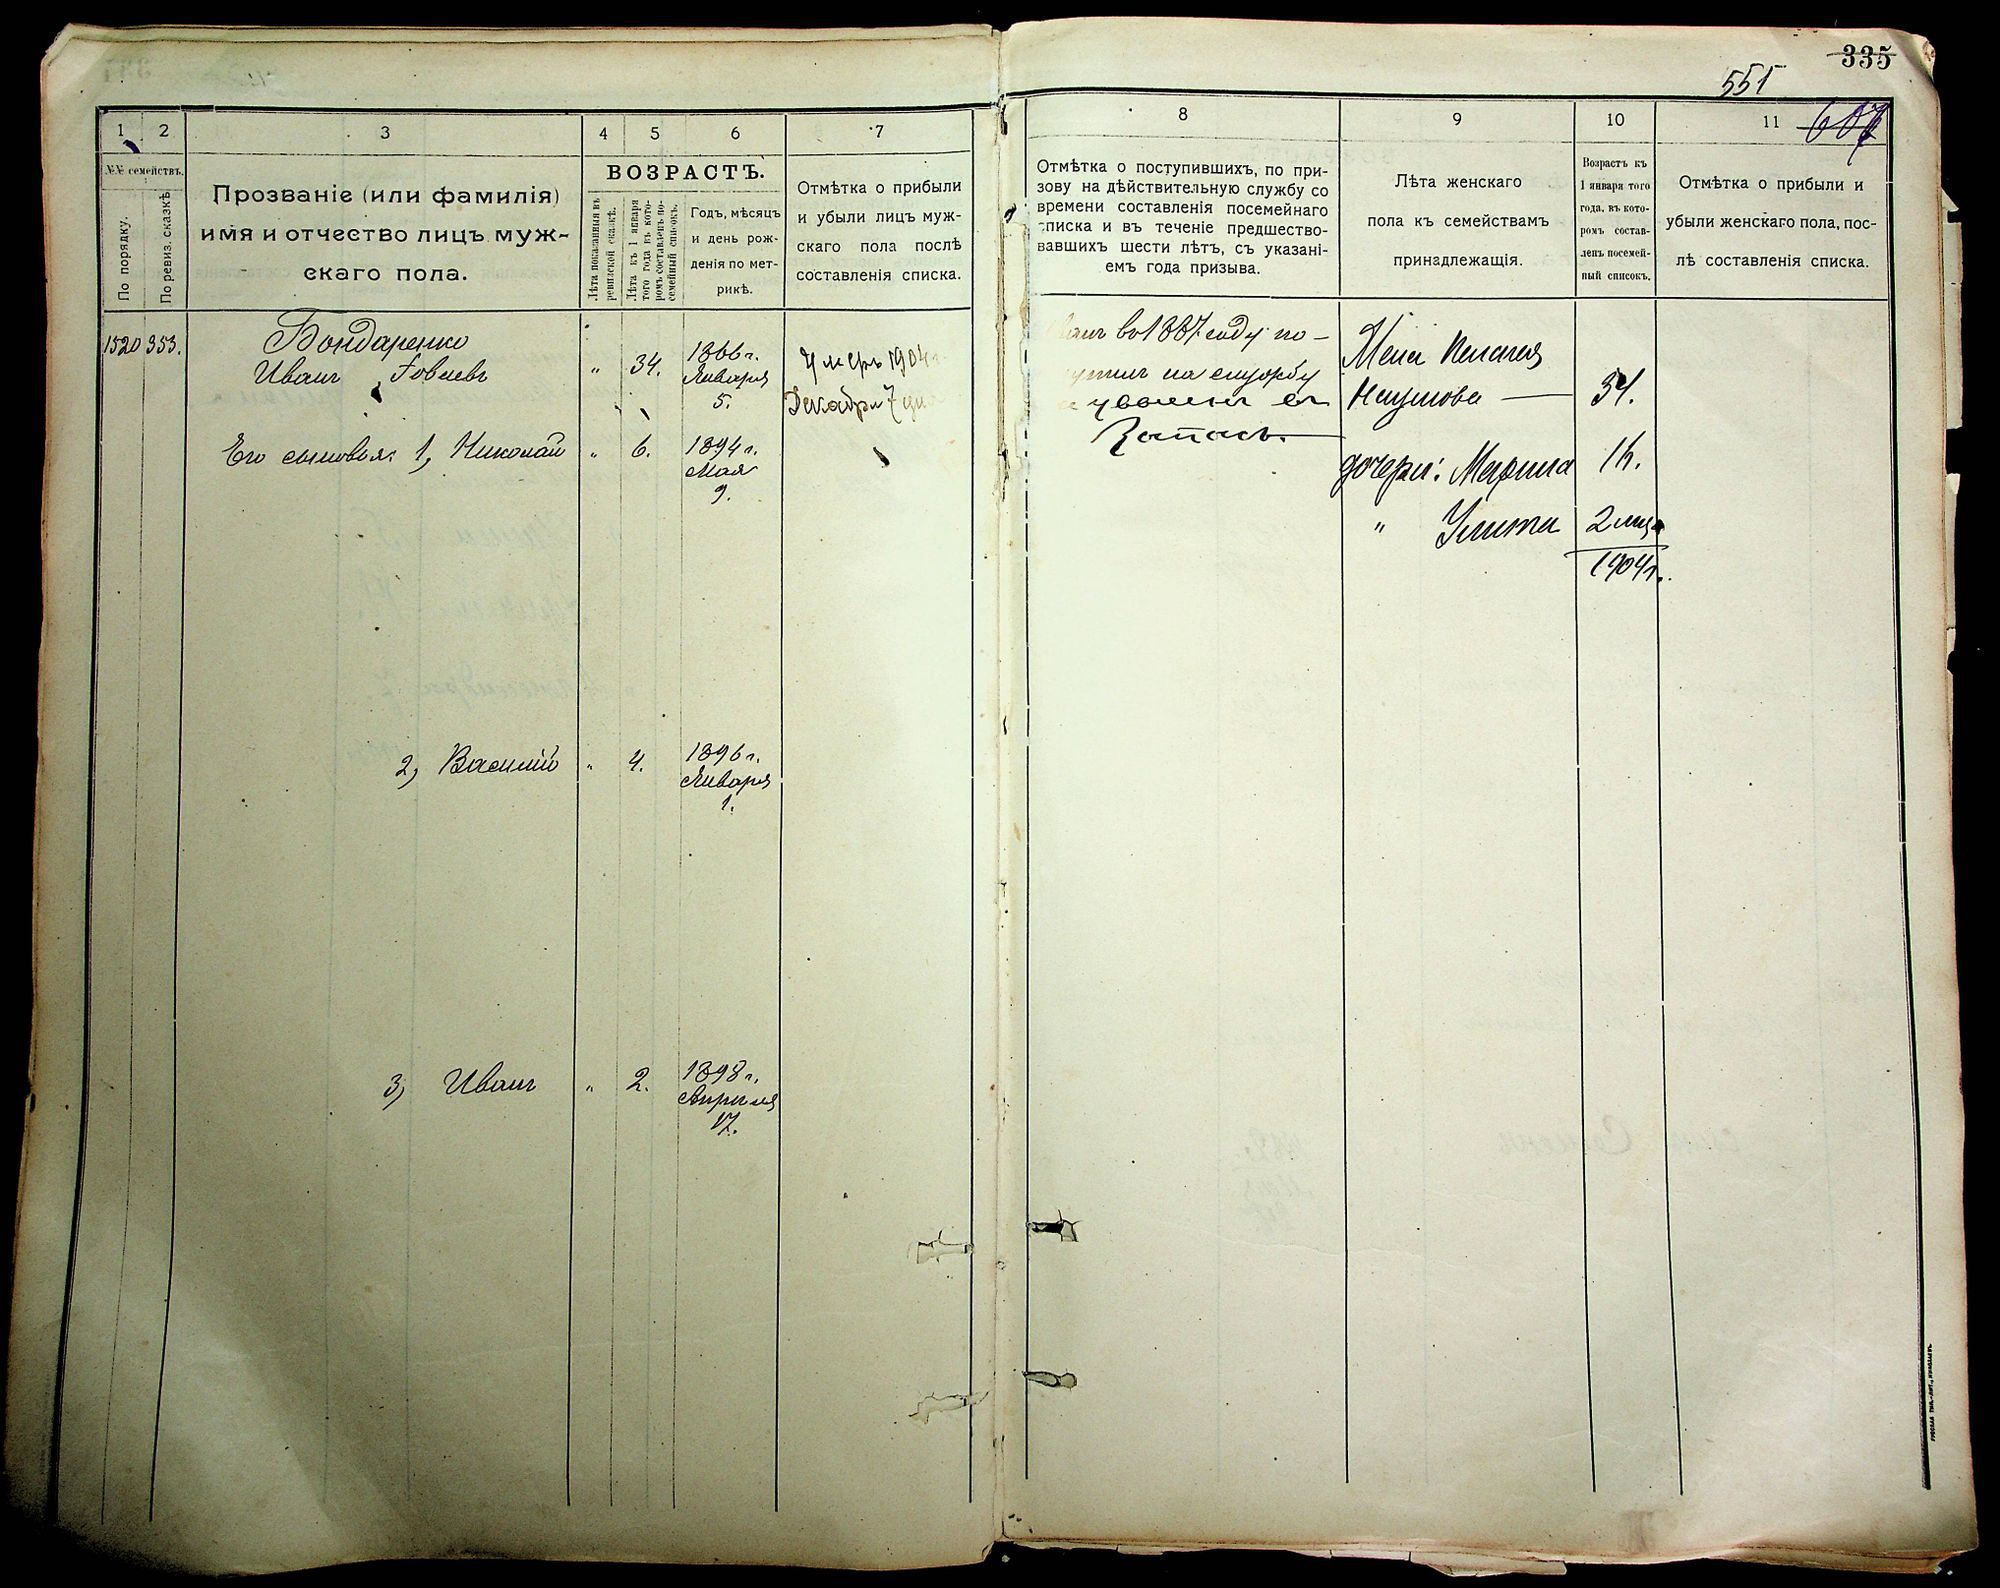 335
551
607
1
2
3
4
5
6
7
№№ семействъ.
По порядку.
По ревиз. сказкѣ
Прозваніе (или фамилія)
имя и отчество лицъ муж-
скаго пола.
ВОЗРАСТЪ.
Лѣта показанныя въ
ревизской сказкѣ.
Лѣта къ 1 января
того года въ кото-
ромъ составленъ по-
семейный списокъ.
Годъ, мѣсяцъ
и день рож-
денія по мет-
рикѣ.
Отмѣтка о прибыли
и убыли лицъ муж-
скаго пола послѣ
составленія списка.
1520 353.
Бондаренко
Иванъ Іовлевъ
" 34.
1866 г.
Января
5.
Умеръ 1904 г
Декабря 7 дня
Его сыновья: 1, Николай " 6.
1894 г.
Мая
9.
2, Василій " 4.
1896 г.
Января
1.
3, Иванъ " 2.
1898 г.
Апрѣля
17.
8
9
10
11
Отмѣтка о поступившихъ, по при-
зову на дѣйствительную службу со
времени составленія посемейнаго
списка и въ теченіе предшество-
вавшихъ шести лѣтъ, съ указані-
емъ года призыва.
Лѣта женскаго
пола къ семействамъ
принадлежащія.
Возрастъ къ
1 января того
года, въ кото-
ромъ состав-
ленъ посемей-
ный списокъ.
Отмѣтка о прибыли и
убыли женскаго пола, пос-
лѣ составленія списка.
Иванъ въ 1887 году по-
ступилъ на службу
и уволенъ въ
Запасъ.
Жена Пелагея
Наумова 34.
дочери: Марина 14.
" Улита 2 мѣс
1904 г.